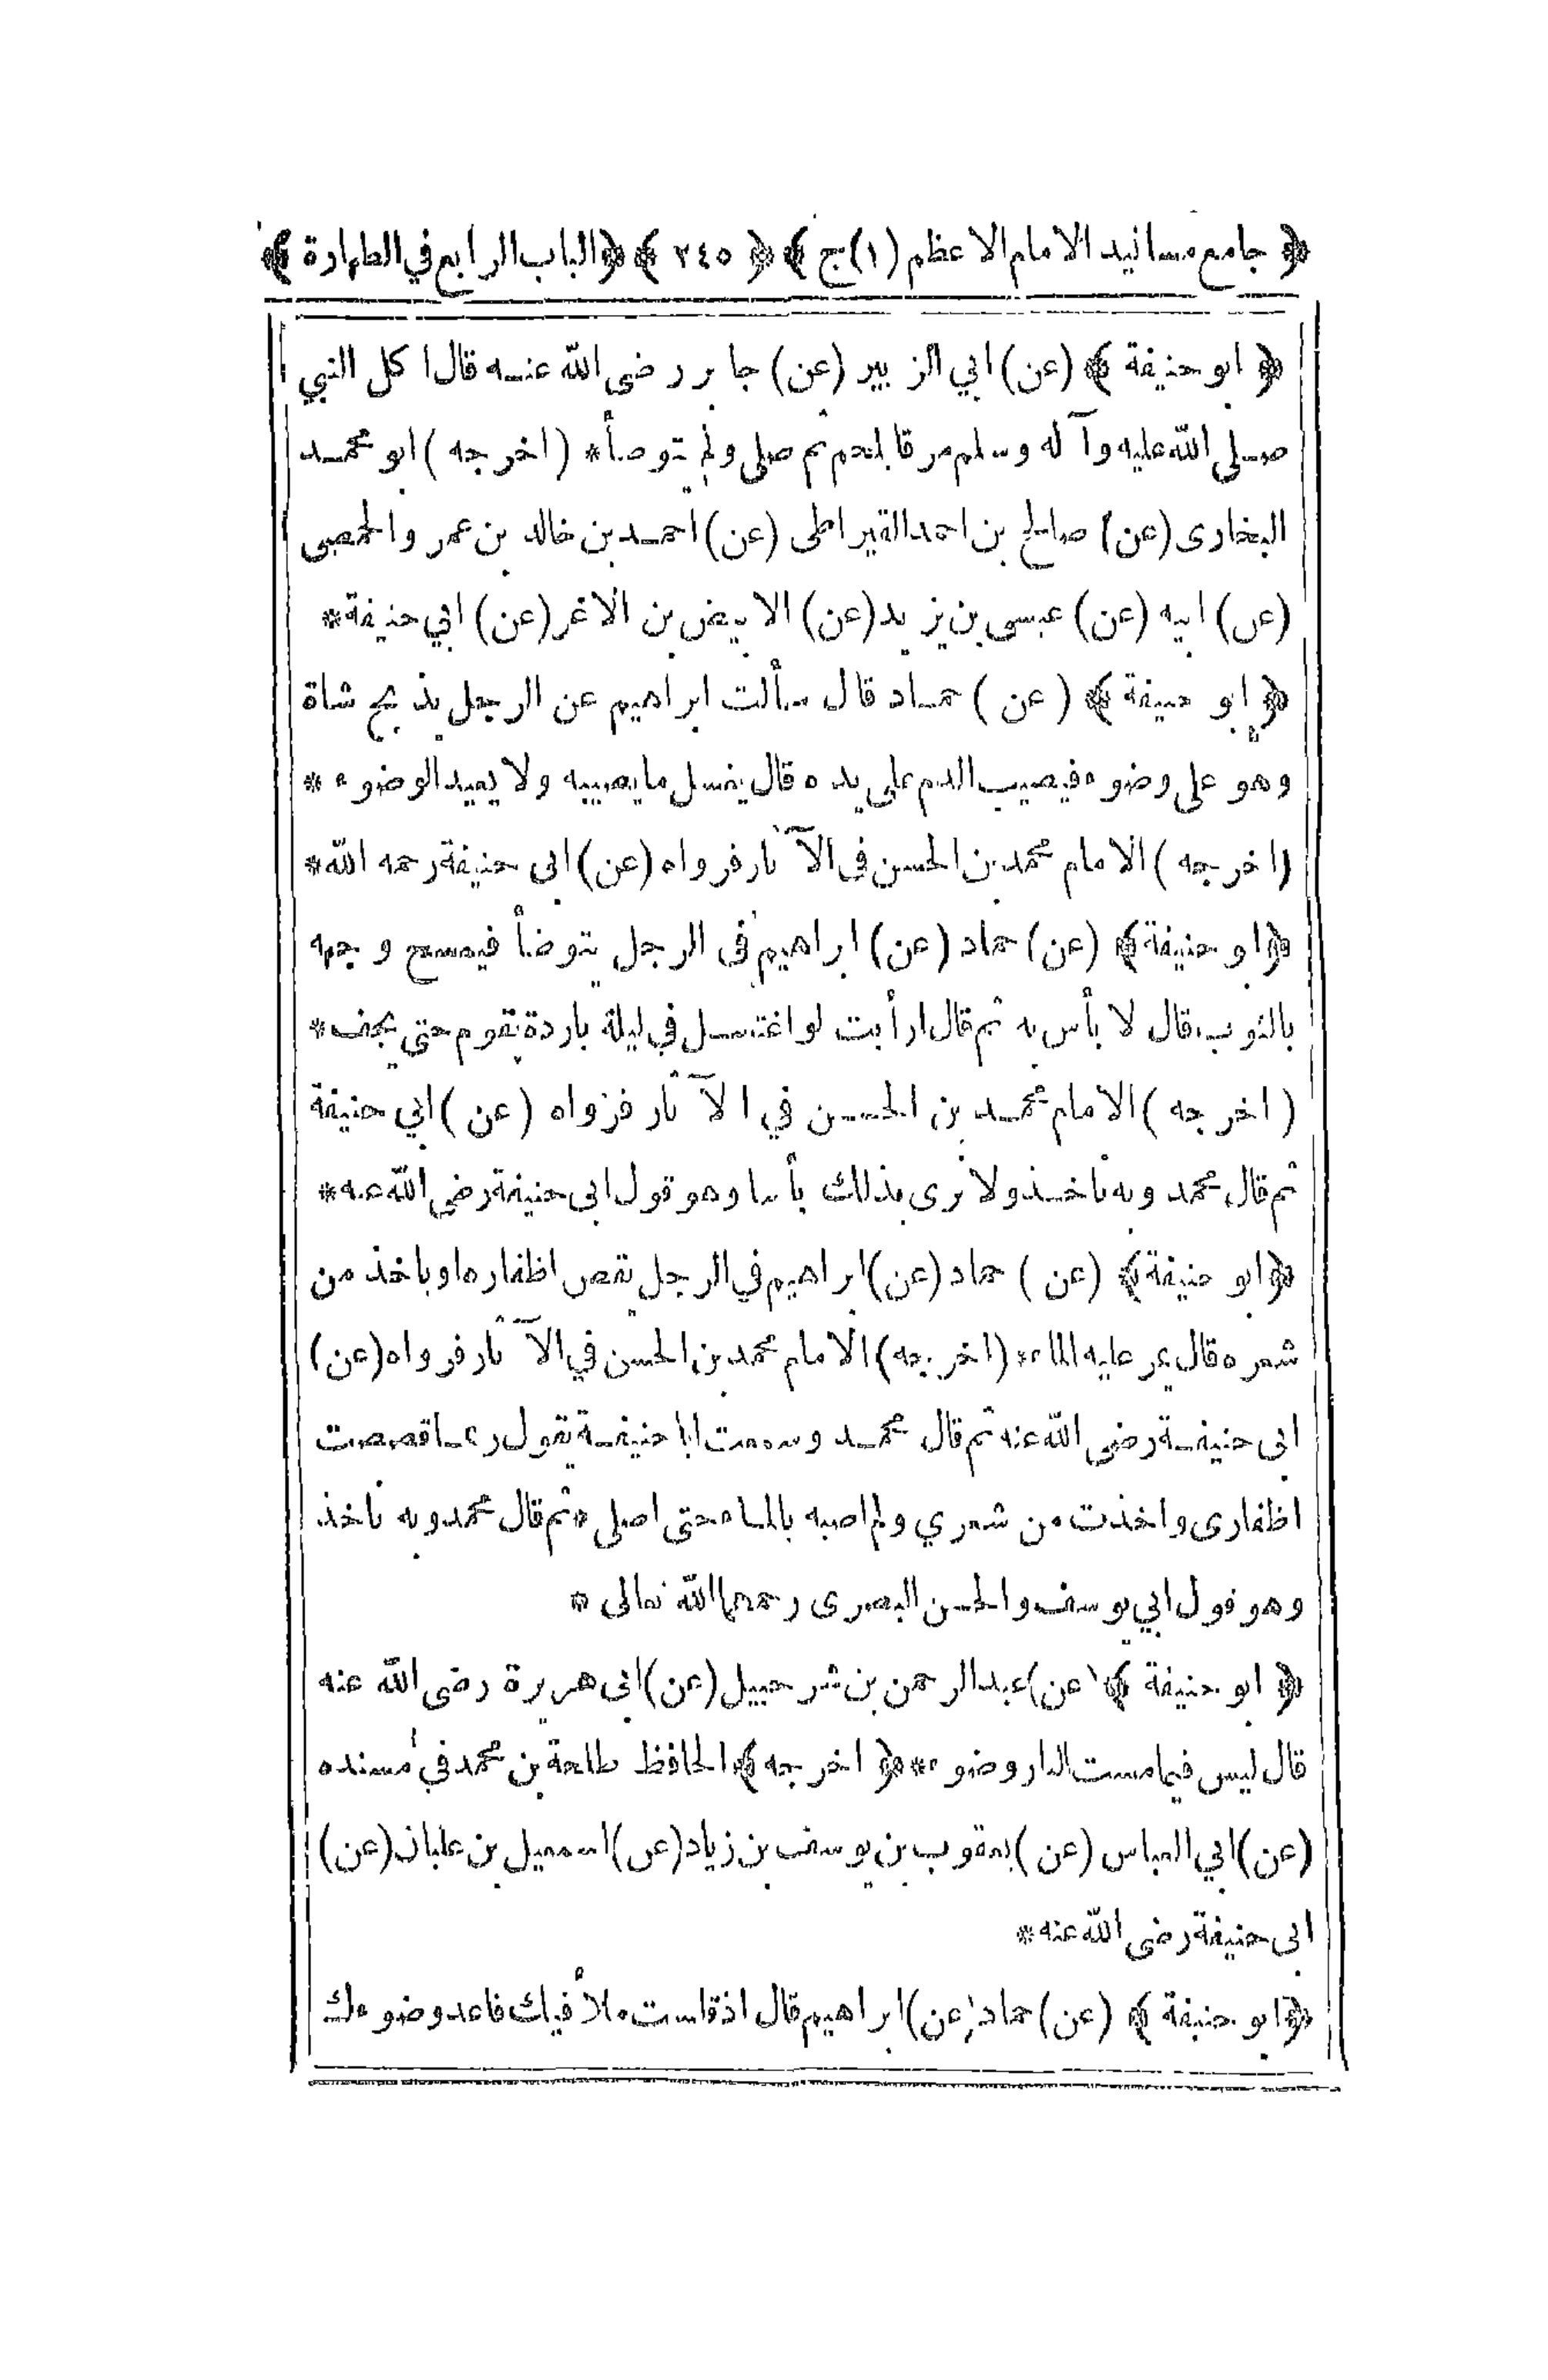 ﴿ جامع مسانيد الامام الاعظم (١) ج ﴾ ﴿ ٢٤٥ ﴾ ﴿ الباب الرابع في الطهارة ﴾
﴿ ابو حنيفة ﴾ (عن) ابي الزبير (عن) جابر رضى الله عنه قال اكل النبي
صلى الله عليه وآله وسلم مرقا بلحم ثم صلى ولم يتوضأ* (اخرجه) ابو محمد
البخارى (عن) صالح بن احمد القيراطى (عن) احمد بن خالد بن عمر والحمصى
(عن) ابيه (عن) عيسى بن يزيد (عن) الابيض بن الاغر (عن) ابي حنيفة*
﴿ ابو حنيفة ﴾ (عن) حماد قال سألت ابراهيم عن الرجل يذبح شاة
وهو على وضوء فيصيب الدم على يده قال يغسل ما يصيبه ولا يعيد الوضوء *
(اخرجه) الامام محمد بن الحسن في الآثار فرواه (عن) ابى حنيفة رحمه الله*
﴿ ابو حنيفة ﴾ (عن) حماد (عن) ابراهيم فى الرجل يتوضأ فيمسح وجهه
بالثوب قال لا بأس به ثم قال ارأيت لو اغتسل في ليلة باردة يقوم حتى يجف*
(اخرجه) الامام محمد بن الحسن في الآثار فرواه (عن) ابي حنيفة
ثم قال محمد وبه نأخذ ولا نرى بذلك بأسا وهو قول ابى حنيفة رضى الله عنه*
﴿ ابو حنيفة ﴾ (عن) حماد (عن) ابراهيم في الرجل يقص اظفاره او ياخذ من
شعره قال يمر عليه الماء* (اخرجه) الامام محمد بن الحسن في الآثار فرواه (عن)
ابى حنيفة رضى الله عنه ثم قال محمد وسمعت ابا حنيفة يقول ربما قصصت
اظفارى واخذت من شعري ولم اصبه بالماء حتى اصلى * ثم قال محمد وبه ناخذ
وهو قول ابي يوسف والحسن البصرى رحمهما الله تعالى *
﴿ ابو حنيفة ﴾ (عن) عبد الرحمن بن شرحبيل (عن) ابى هريرة رضى الله عنه
قال ليس فيما مست النار وضوء* ﴿ اخرجه ﴾ الحافظ طلحة بن محمد في مسنده
(عن) ابي العباس (عن) يعقوب بن يوسف بن زياد (عن) اسمعيل بن علبان (عن)
ابى حنيفة رضى الله عنه*
﴿ ابو حنيفة ﴾ (عن) حماد (عن) ابراهيم قال اذ قلست ملأ فيك فاعد وضوءك